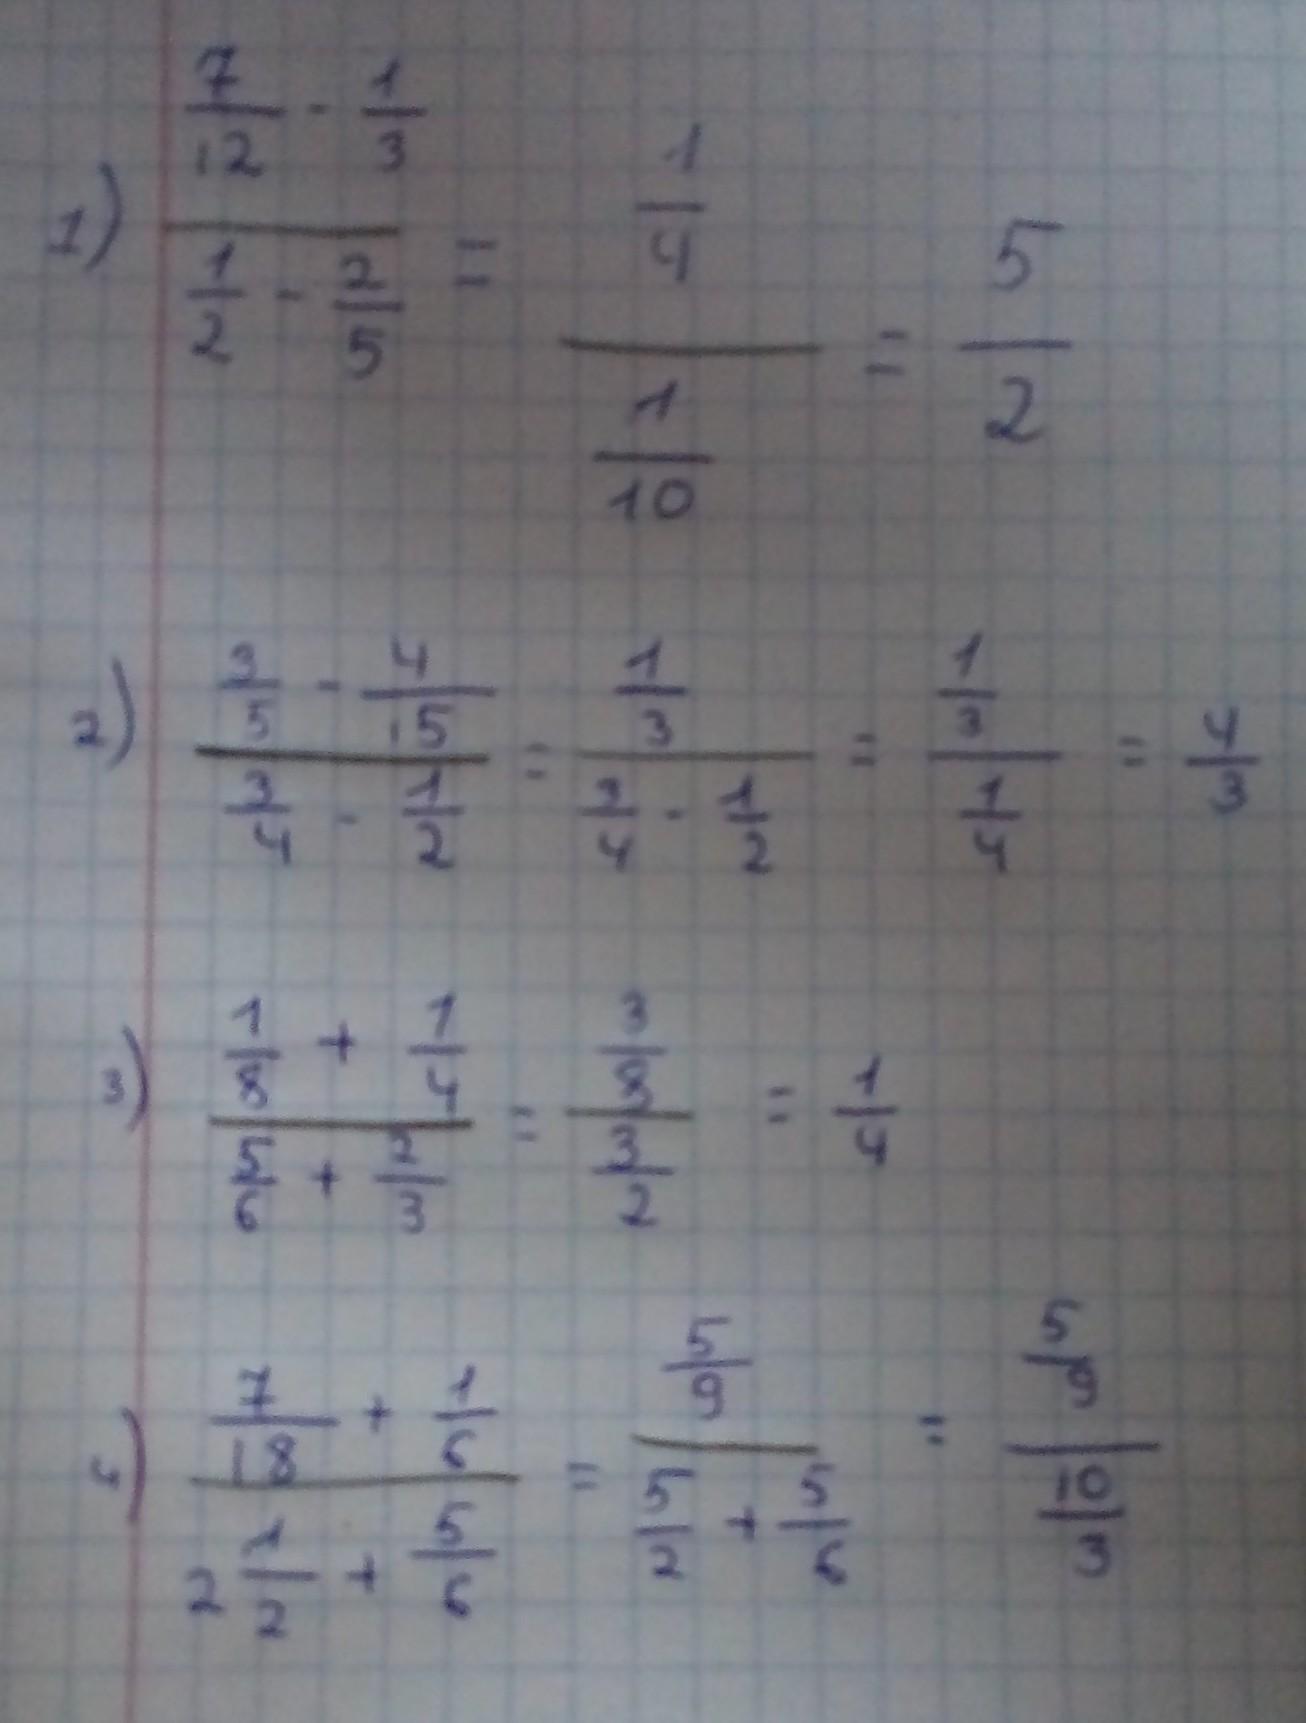 1) (7/12 - 1/3) / (1/2 - 2/5) = (1/4) / (1/10) = 5/2
2) (3/5 - 4/15) / (3/4 - 1/2) = (1/3) / (3/4 - 1/2) = (1/3) / (1/4) = 4/3
3) (1/8 + 1/4) / (5/6 + 2/3) = (3/8) / (3/2) = 1/4
4) (7/18 + 1/6) / (2 1/2 + 5/6) = (5/9) / (5/2 + 5/6) = (5/9) / (10/3)